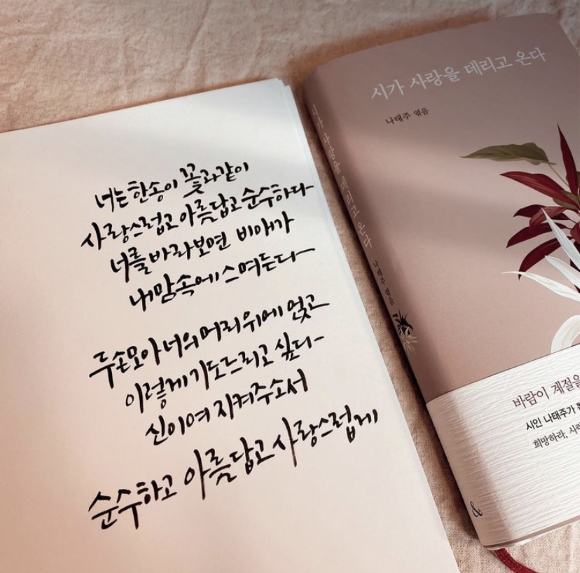 너는 한송이 꽃과같이
사랑스럽고 아름답고 순수하다
너를 바라보면 비애가
내맘속에 스며든다
두손모아 너의 머리위에 얹고
이렇게 기도드리고 싶다
신이여 지켜주소서
순수하고 아름답고 사랑스럽게
시가 사랑을 데리고 온다
나태주 엮음
시가 사랑을 데리고 온다
나태주 엮음
바람이 계절을
시인 나태주가
희망하라, 사
&